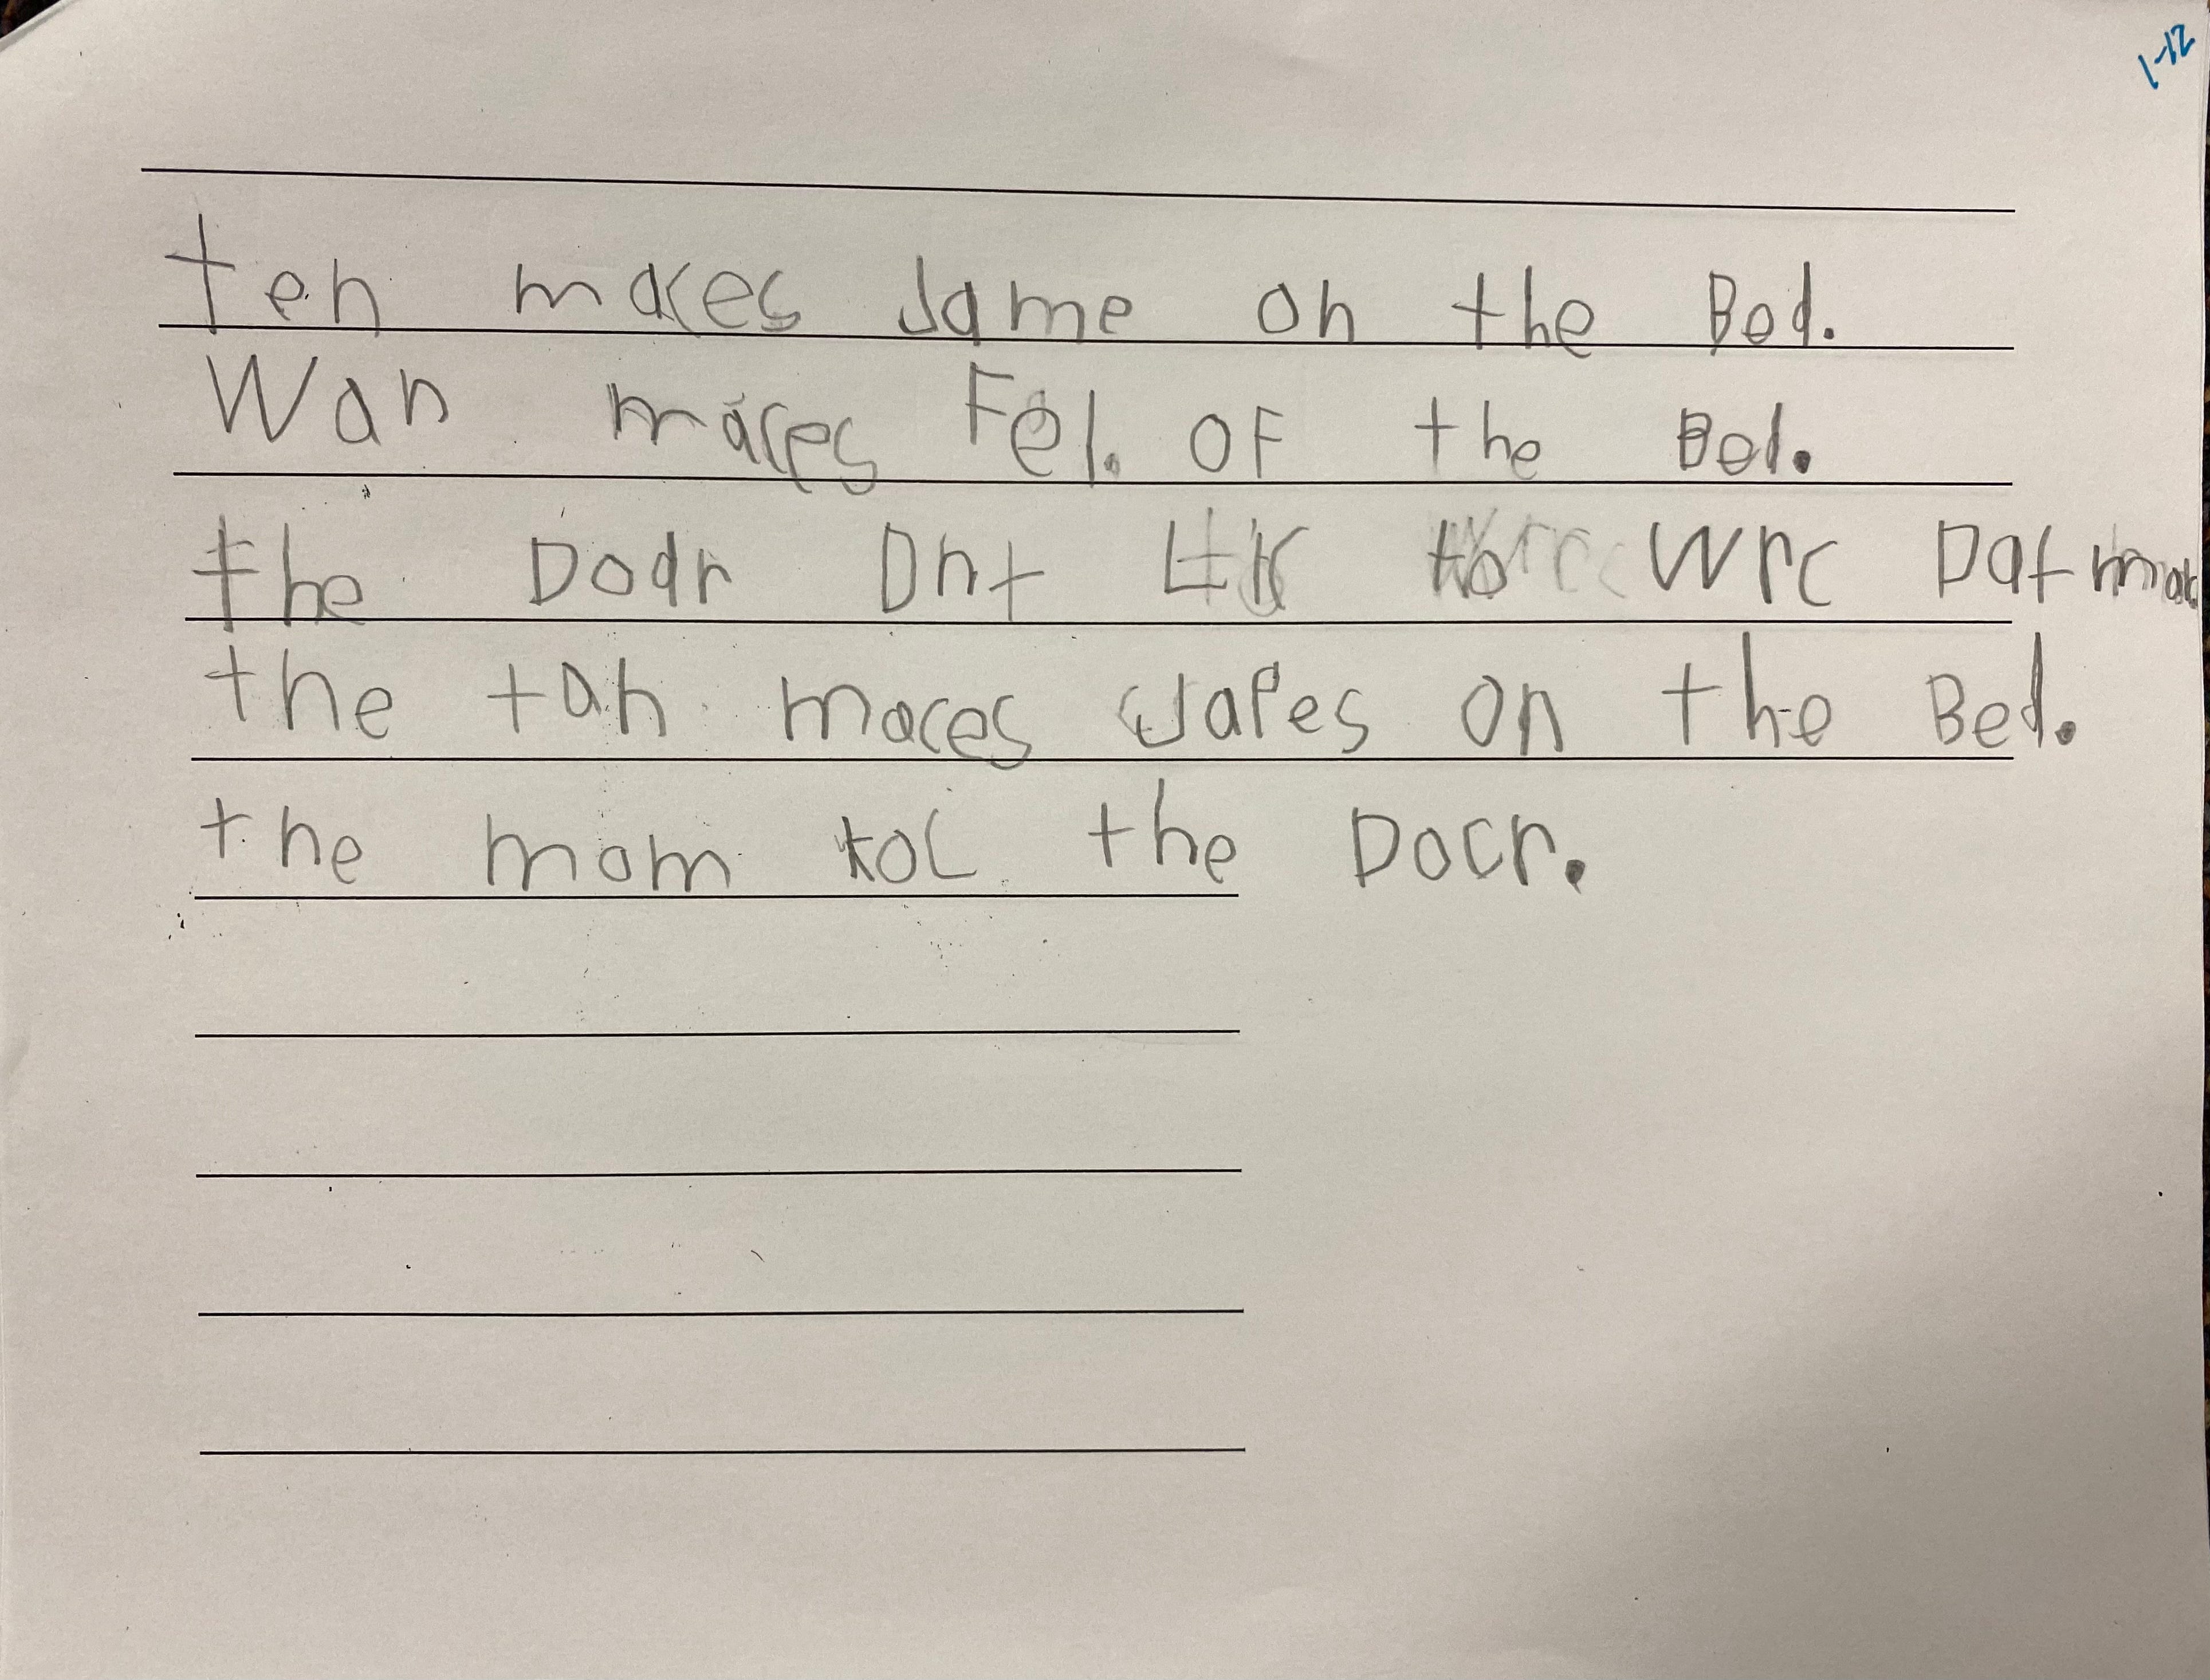 1-12
ten maces Jame on the Bed.
Wan maces Fel. OF the Bed.
the Dodr Dnt LIK to Wrc Dat
the tan maces Japes on the Bed.
the mom kol the Docr.